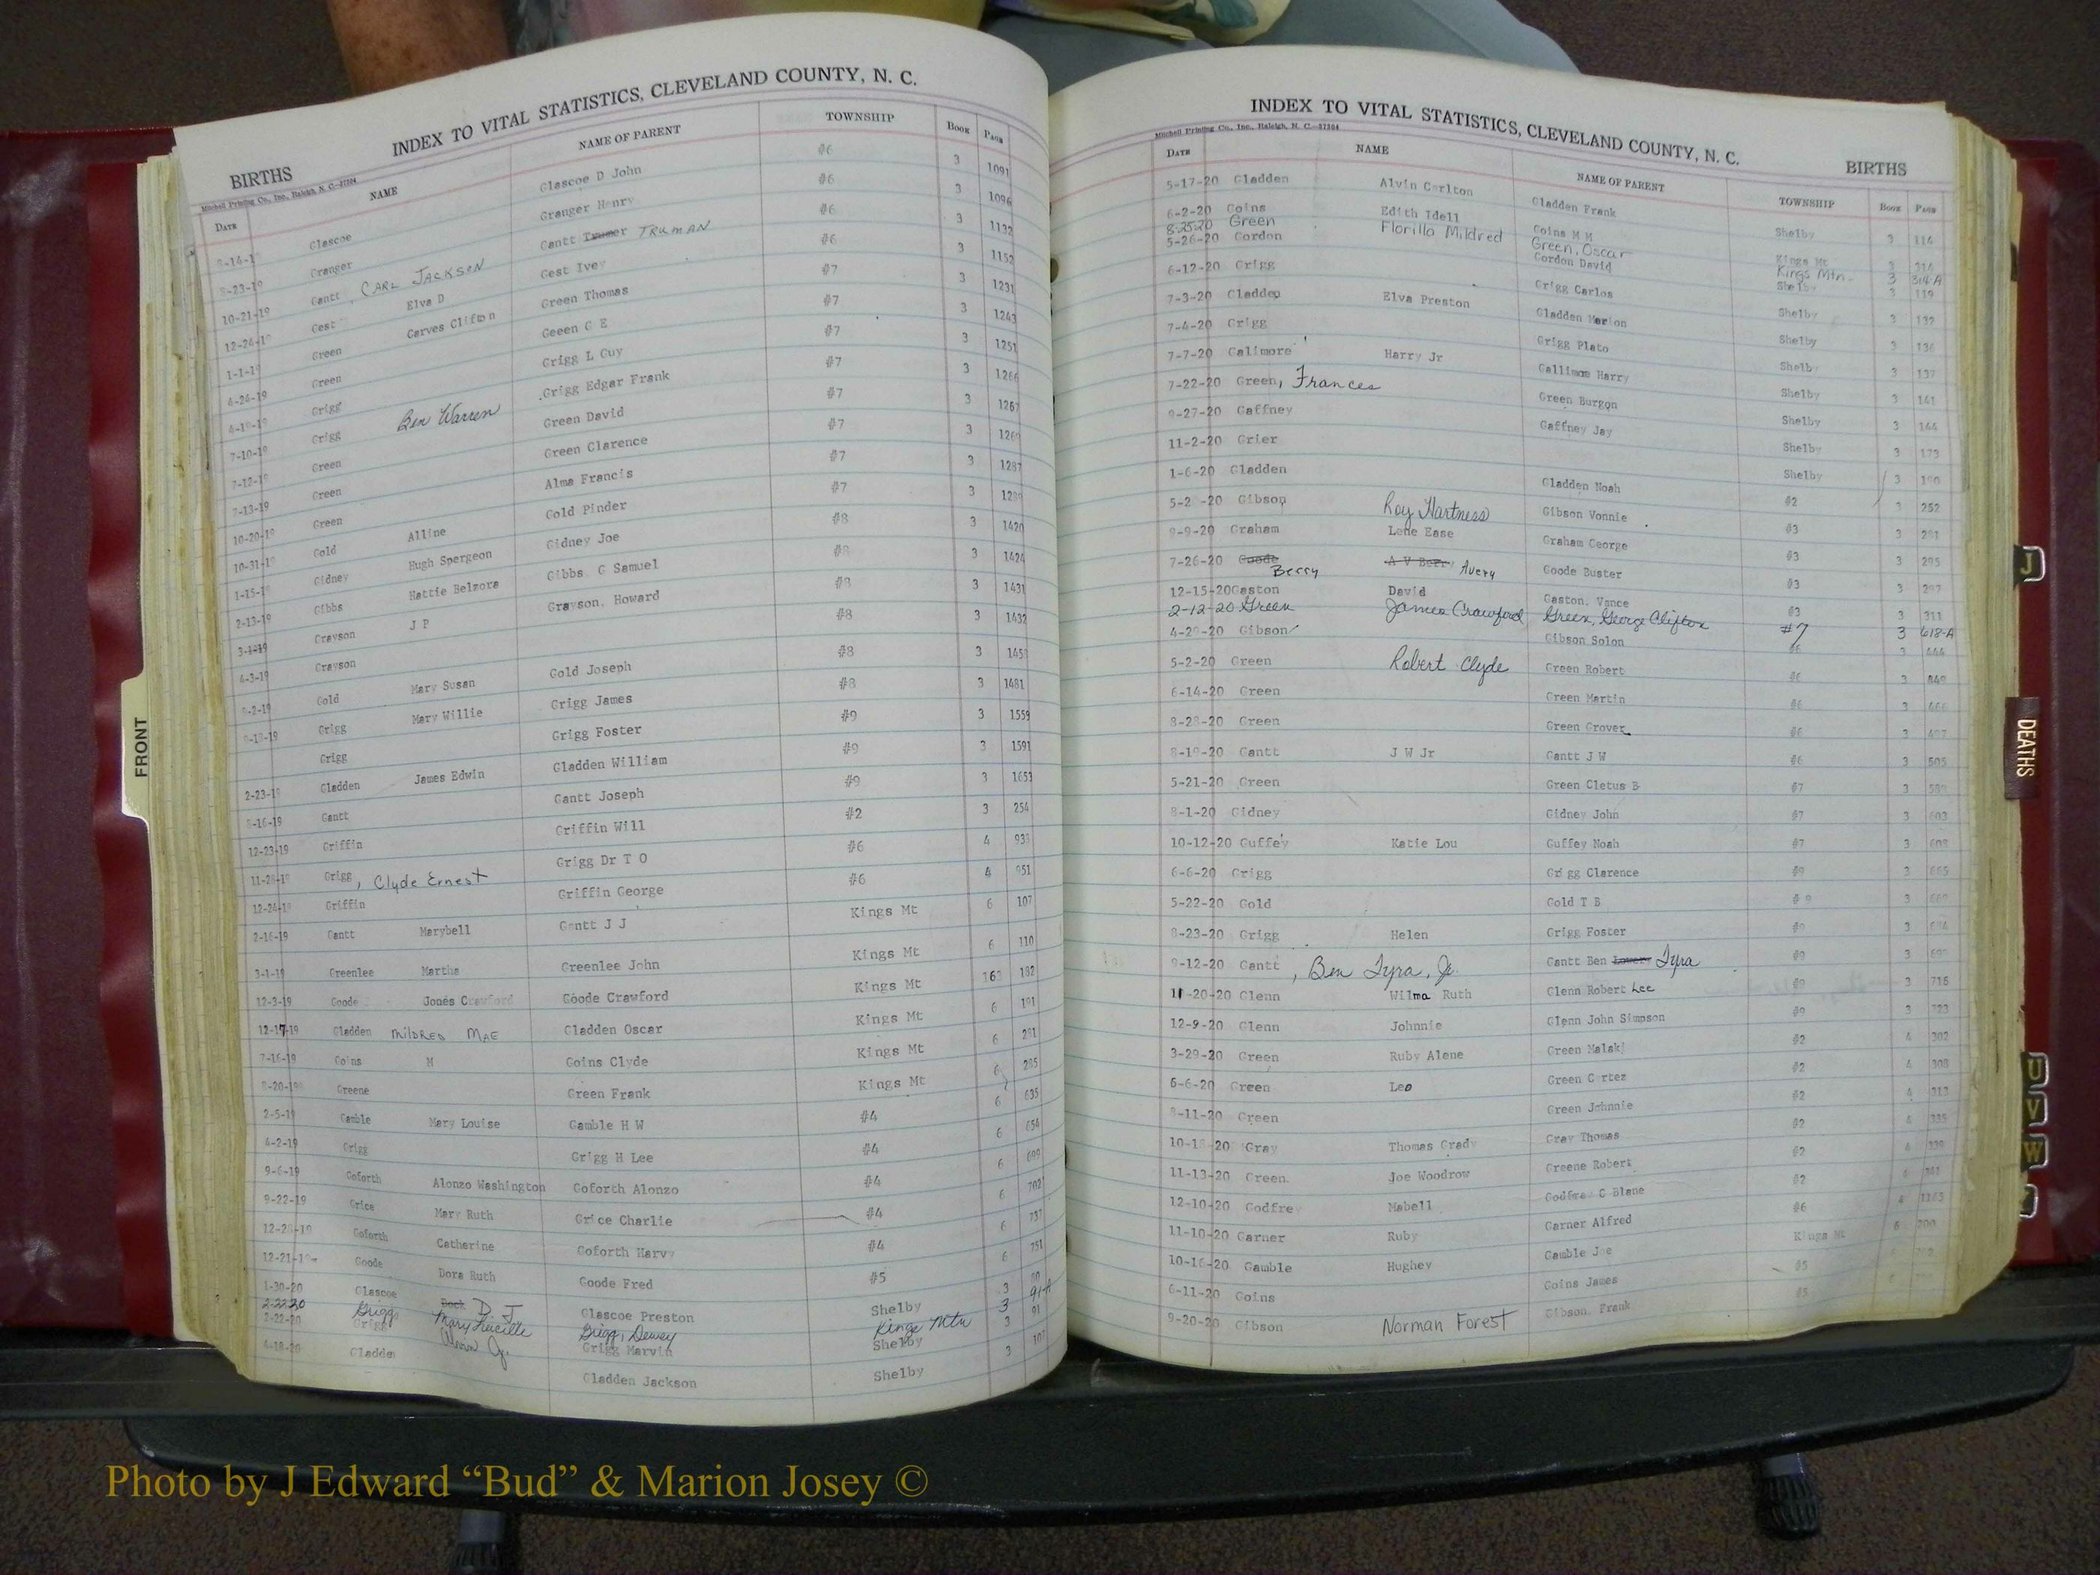 INDEX TO VITAL STATISTICS, CLEVELAND COUNTY, N. C.
BIRTHS
Mitchell Printing Co., Inc., Raleigh, N. C.—27204
DATE NAME NAME OF PARENT TOWNSHIP BOOK PAGE
Glascoe Glascoe D John #6 3 1091
8-23-19 Granger Granger Henry #6 3 1096
10-21-19 Gantt, CARL JACKSON Gantt Trumer TRUMAN #6 3 1132
12-24-19 Gest Elva D Gest Ivey #6 3 1152
1-1-19 Green Carves Clifton Green Thomas #7 3 1231
4-24-19 Green Geeen G E #7 3 1243
4-19-19 Grigg Grigg L Guy #7 3 1251
7-10-19 Grigg Ben Warren Grigg Edgar Frank #7 3 1266
7-12-19 Green Green David #7 3 1267
7-13-19 Green Green Clarence #7 3 1269
10-20-19 Green Alma Francis #7 3 1287
10-31-19 Gold Alline Gold Pinder #7 3 1289
1-15-19 Gidney Hugh Spergeon Gidney Joe #8 3 1420
2-13-19 Gibbs Hattie Belzora Gibbs G Samuel #8 3 1424
3-1-19 Grayson J P Grayson, Howard #8 3 1431
4-3-19 Grayson #8 3 1432
9-2-19 Gold Mary Susan Gold Joseph #8 3 1458
9-18-19 Grigg Mary Willie Grigg James #8 3 1481
Grigg Grigg Foster #9 3 1559
2-23-19 Gladden James Edwin Gladden William #9 3 1591
8-16-19 Gantt Gantt Joseph #9 3 1653
12-23-19 Griffin Griffin Will #2 3 254
11-28-19 Grigg, Clyde Ernest Grigg Dr T O #6 4 938
12-24-19 Griffin Griffin George #6 4 951
2-16-19 Gantt Marybell Gantt J J Kings Mt 6 107
3-1-19 Greenlee Martha Greenlee John Kings Mt 6 110
12-3-19 Goode Jones Crawford Goode Crawford Kings Mt 163 182
12-17-19 Gladden MILDRED MAE Gladden Oscar Kings Mt 6 191
7-16-19 Goins M Goins Clyde Kings Mt 6 281
8-20-19 Greene Green Frank Kings Mt 6 285
2-5-19 Gamble Mary Louise Gamble H W #4 6 635
4-2-19 Grigg Grigg H Lee #4 6 654
9-6-19 Goforth Alonzo Washington Goforth Alonzo #4 6 699
9-22-19 Grice Mary Ruth Grice Charlie #4 6 702
12-28-19 Goforth Catherine Goforth Harvy #4 6 737
12-21-19 Goode Dora Ruth Goode Fred #5 6 751
1-30-20 Glascoe Dock D. J Glascoe Preston Shelby 3 80
2-22-20 Grigg Mary Lucille Grigg, Dewey Kings Mtn 3 91-A
2-22-20 Grigg Grigg Marvin Shelby 3 91
4-18-20 Gladden Gladden Jackson Shelby 3 107
INDEX TO VITAL STATISTICS, CLEVELAND COUNTY, N. C.
Mitchell Printing Co., Inc., Raleigh, N. C.—27204
BIRTHS
DATE NAME NAME OF PARENT TOWNSHIP BOOK PAGE
5-17-20 Gladden Alvin Carlton Gladden Frank Shelby 3 114
6-2-20 Goins Edith Idell Goins M M Kings Mt 3 314
8-25-20 Green Florillo Mildred Green, Oscar Kings Mtn. 3 314-A
5-26-20 Gordon Gordon David Shelby 3 119
6-12-20 Grigg Grigg Carlos Shelby 3 132
7-3-20 Gladden Elva Preston Gladden Marion Shelby 3 136
7-4-20 Grigg Grigg Plato Shelby 3 137
7-7-20 Galimore Harry Jr Gallimon Harry Shelby 3 141
7-22-20 Green, Frances Green Burgon Shelby 3 144
9-27-20 Gaffney Gaffney Jay Shelby 3 173
11-2-20 Grier Shelby 3 190
1-6-20 Gladden Gladden Noah #2 3 252
5-2 -20 Gibson Roy Hartness Gibson Vonnie #3 3 281
9-9-20 Graham Lene Ease Graham George #3 3 295
7-26-20 Goode Berry A V Berr Avery Goode Buster #3 3 297
12-15-20 Gaston David Gaston. Vance #3 3 311
2-12-20 Green James Crawford Green, George Clifton #7 3 618-A
4-29-20 Gibson Gibson Solon #6 3 444
5-2-20 Green Robert Clyde Green Robert #6 3 449
6-14-20 Green Green Martin #6 3 466
8-28-20 Green Green Grover #6 3 497
8-19-20 Gantt J W Jr Gantt J W #6 3 505
5-21-20 Green Green Cletus B #7 3
8-1-20 Gidney Gidney John #7 3 603
10-12-20 Guffey Katie Lou Guffey Noah #7 3 608
6-6-20 Grigg Grigg Clarence #9 3 665
5-22-20 Gold Gold T B # 9 3
8-23-20 Grigg Helen Grigg Foster #9 3
9-12-20 Gantt, Ben Tyra, Jr. Gantt Ben Tyra #9 3
11-20-20 Glenn Wilma Ruth Glenn Robert Lee #9 3 716
12-9-20 Glenn Johnnie Glenn John Simpson #9 3 723
3-29-20 Green Ruby Alene Green Malaki #2 4 302
6-6-20 Green Leo Green Cortez #2 4 308
8-11-20 Green Green Johnnie #2 4 313
10-18-20 Gray Thomas Grady Gray Thomas #2 4 335
11-13-20 Green. Joe Woodrow Greene Robert #2 4 339
12-10-20 Godfrey Mabell Godfrey C Blane #2 4 341
11-10-20 Garner Ruby Garner Alfred #6 4 1163
10-16-20 Gamble Hughey Gamble Joe Kings Mt 6 200
6-11-20 Goins Goins James #5 6
9-20-20 Gibson Norman Forest Gibson. Frank #5
FRONT
J
DEATHS
U
V
W
Photo by J Edward “Bud” & Marion Josey ©